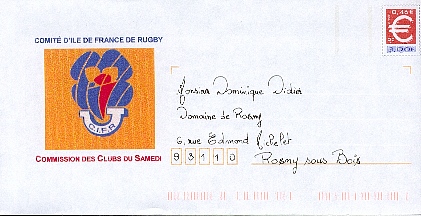 COMITÉ D'ILE DE FRANCE DE RUGBY
C.I.F.R
COMMISSION DES CLUBS DU SAMEDI
0,46 €
Monsieur Dominique Didier
Domaine de Rosny
6, rue Edmond Michelet
93110 Rosny sous Bois